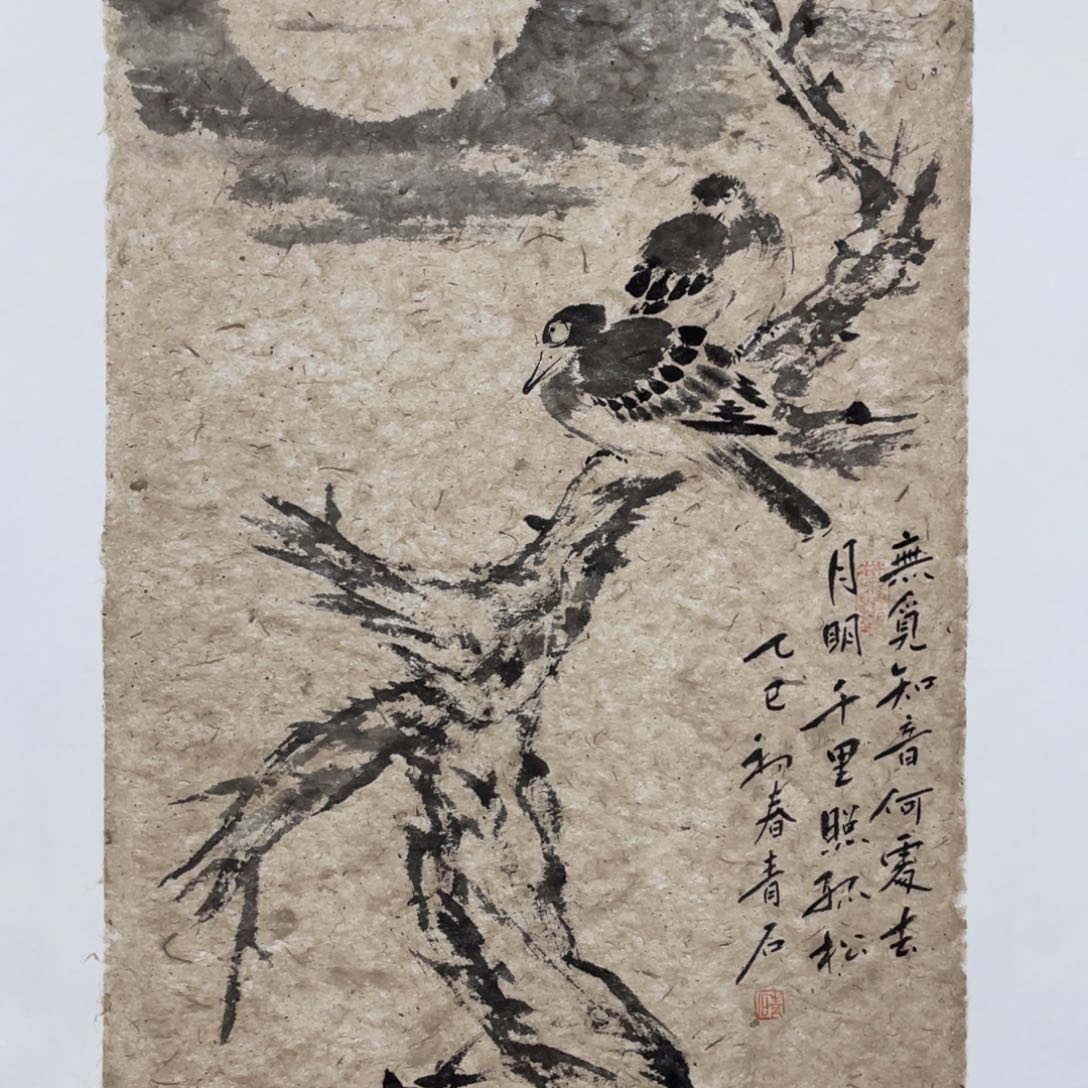 無覓知音何處去
月明千里照孤松
乙巳初春青石
青石